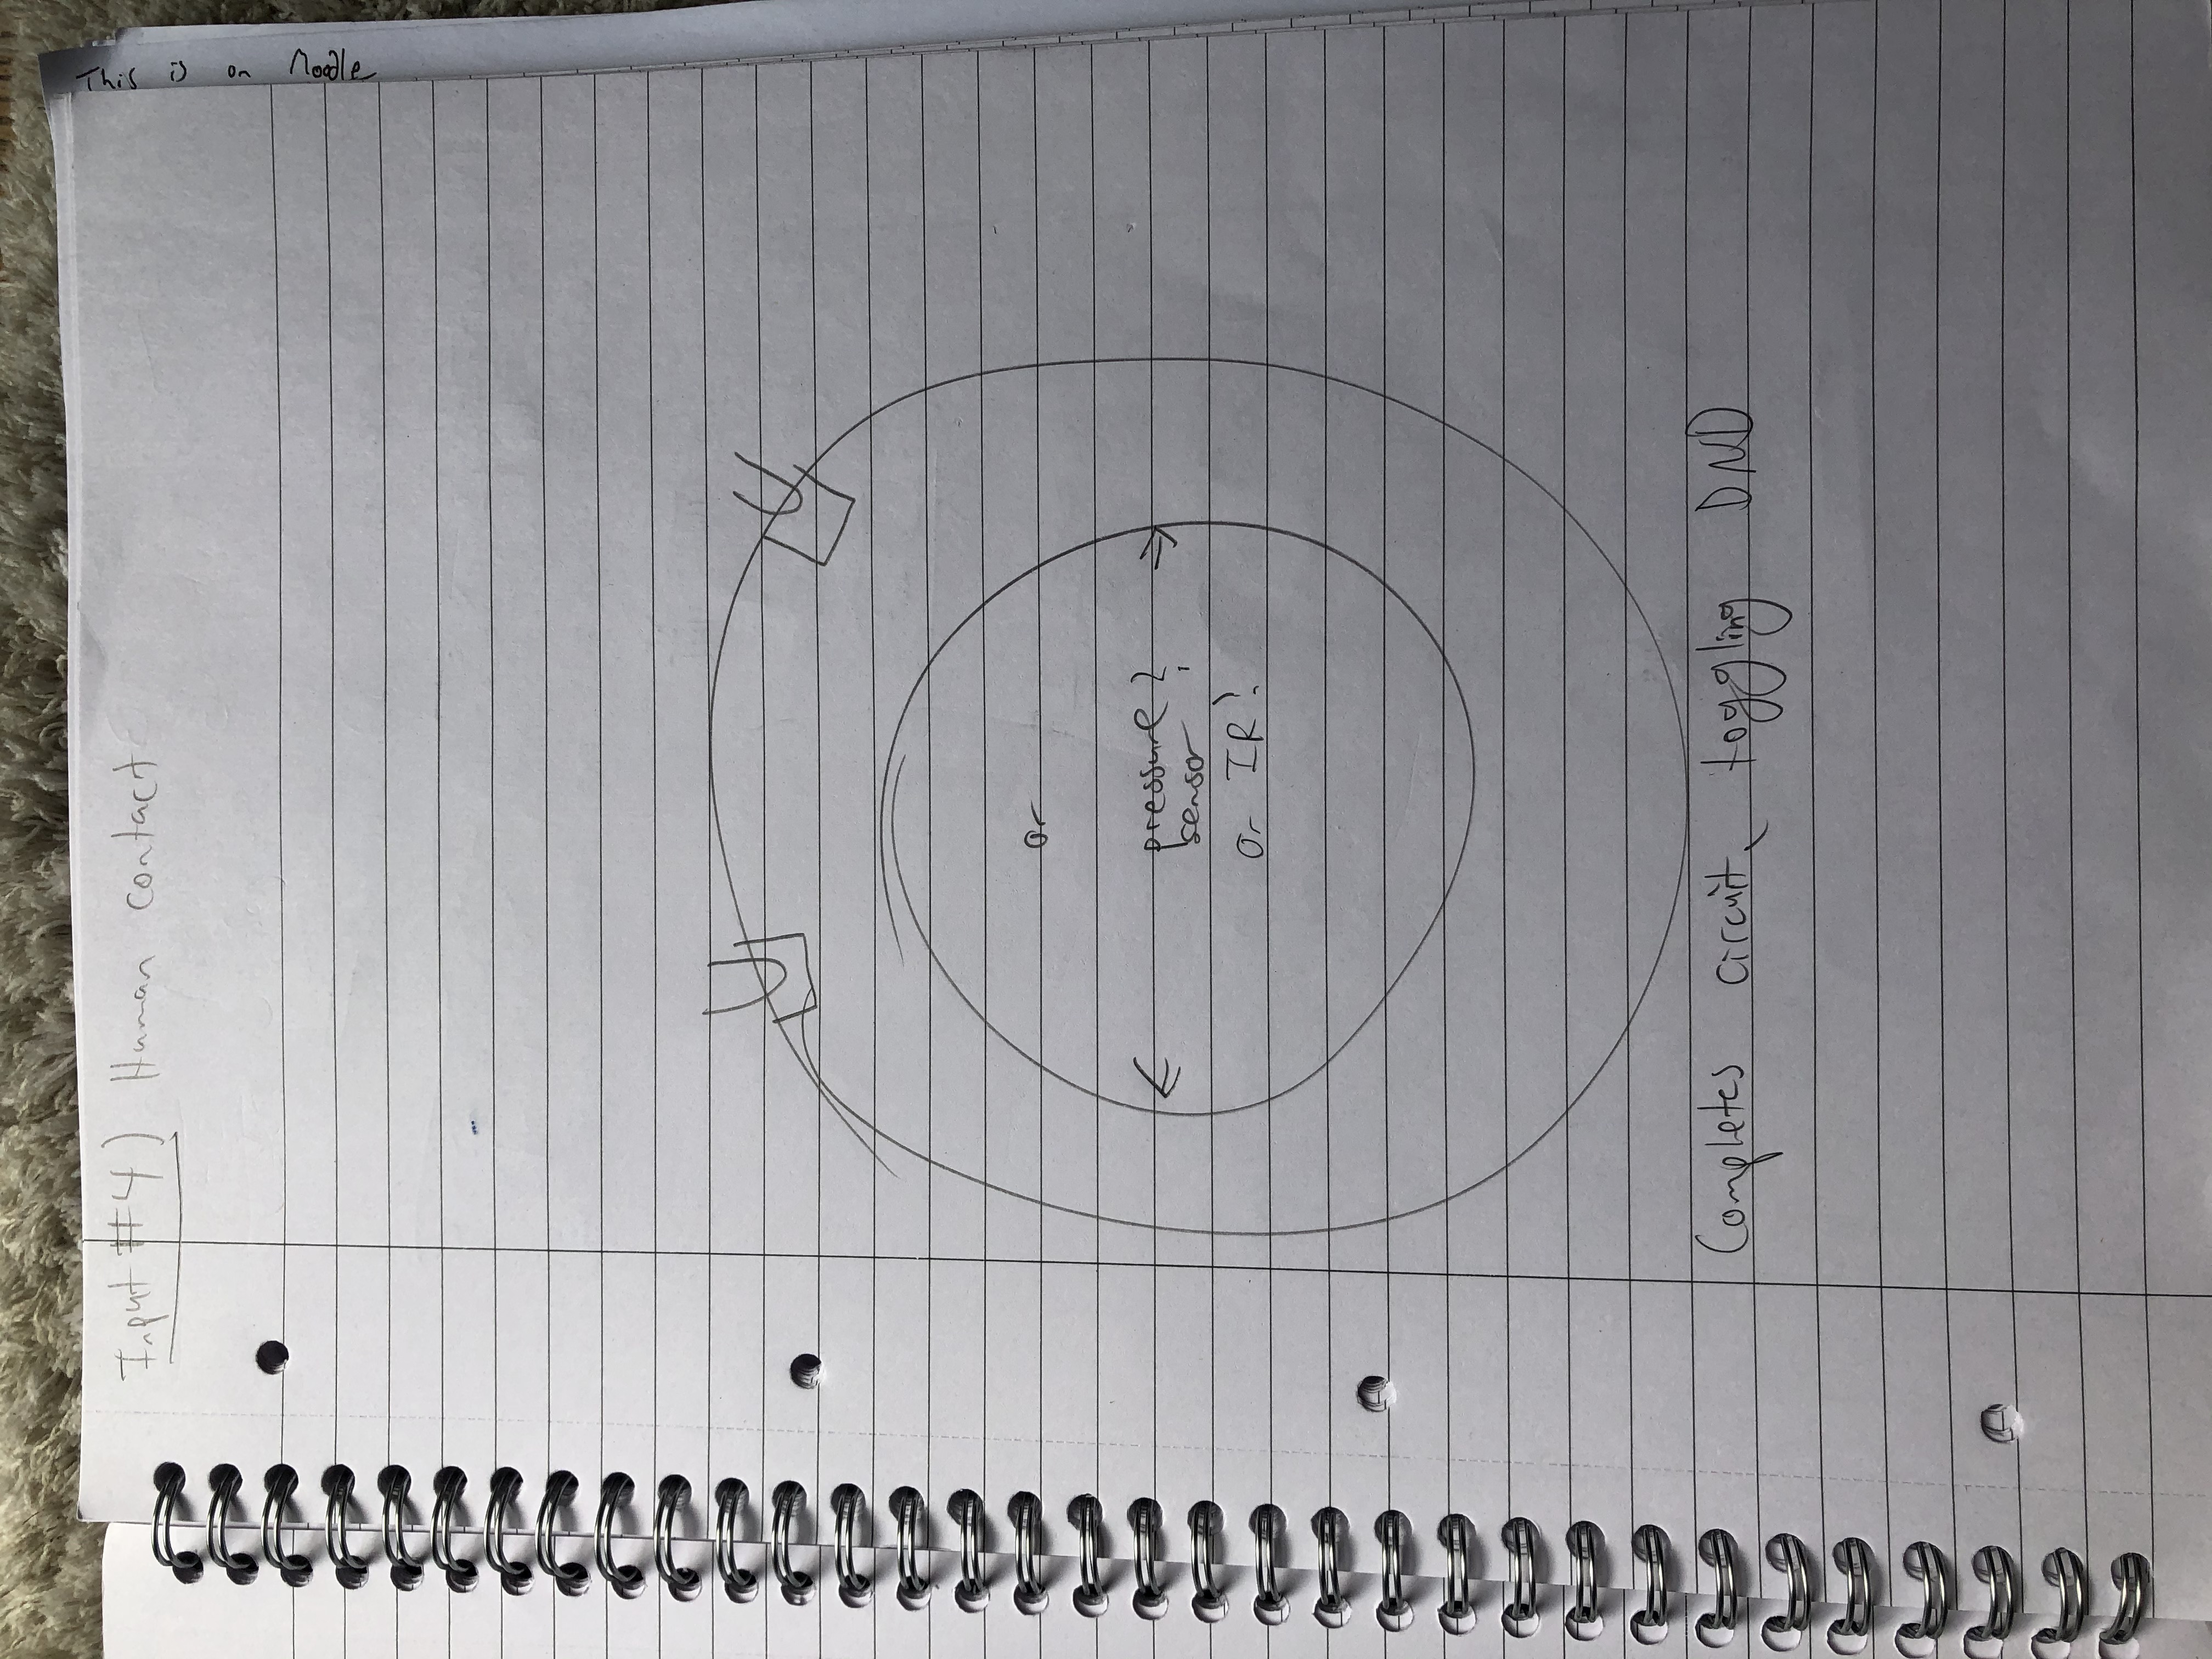 Input #4) Human contact
This is on Moodle
or
pressure?
sensor
or IR?
Completes circuit, toggling DND